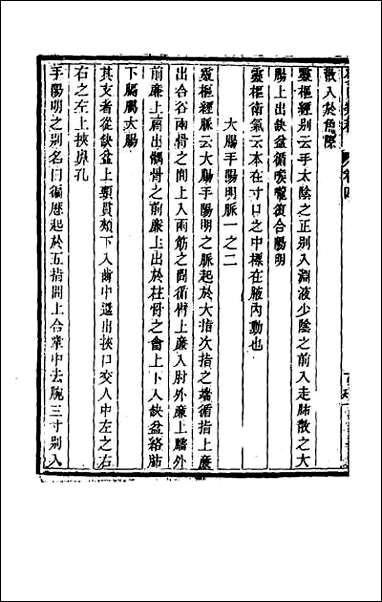 散入於魚際
靈樞經别云手太陰之正别入淵液少陰之前入走肺散之大
腸上出缺盆循喉嚨復合陽明
靈樞衛氣云本在寸口之中標在腋內動也
大腸手陽明脈一之二
靈樞經脈云大腸手陽明之脈起於大指次指之端循指上廉
出合谷兩骨之間上入兩筋之間循臂上廉入肘外廉上臑外
前廉上肩出髃骨之前廉上出於柱骨之會上下入缺盆絡肺
下膈屬大腸
其支者從缺盆上頸貫頰下入齒中還出挾口交人中左之右
右之左上挾鼻孔
手陽明之别名曰徧歷起於五指間上合掌中去腕三寸别入